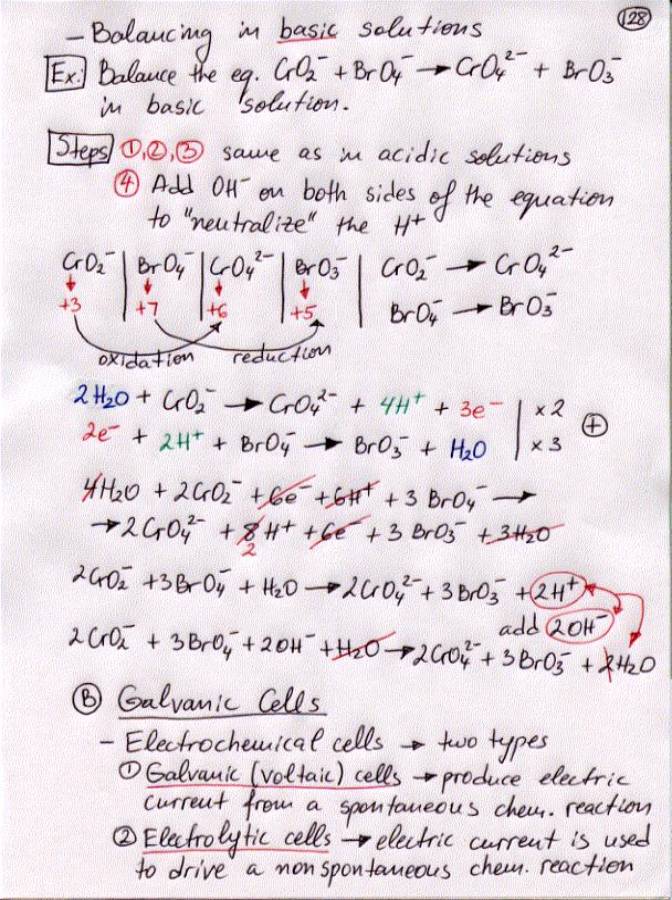 128
– Balancing in basic solutions
Ex: Balance the eq. CrO₂⁻ + BrO₄⁻ → CrO₄²⁻ + BrO₃⁻
in basic solution.
Steps ①,②,③ same as in acidic solutions
④ Add OH⁻ on both sides of the equation
to "neutralize" the H⁺
CrO₂⁻ | BrO₄⁻ | CrO₄²⁻ | BrO₃⁻ | CrO₂⁻ → CrO₄²⁻
+3 +7 +6 +5 BrO₄⁻ → BrO₃⁻
oxidation reduction
2H₂O + CrO₂⁻ → CrO₄²⁻ + 4H⁺ + 3e⁻ | ×2
2e⁻ + 2H⁺ + BrO₄⁻ → BrO₃⁻ + H₂O | ×3 ⊕
4H₂O + 2CrO₂⁻ + 6e⁻ + 6H⁺ + 3BrO₄⁻ →
→ 2CrO₄²⁻ + 8H⁺ + 6e⁻ + 3BrO₃⁻ + 3H₂O
2
2CrO₂⁻ + 3BrO₄⁻ + H₂O → 2CrO₄²⁻ + 3BrO₃⁻ + 2H⁺
add 2OH⁻
2CrO₂⁻ + 3BrO₄⁻ + 2OH⁻ + H₂O → 2CrO₄²⁻ + 3BrO₃⁻ + 2H₂O
Ⓑ Galvanic Cells
– Electrochemical cells → two types
① Galvanic (voltaic) cells → produce electric
current from a spontaneous chem. reaction
② Electrolytic cells → electric current is used
to drive a nonspontaneous chem. reaction